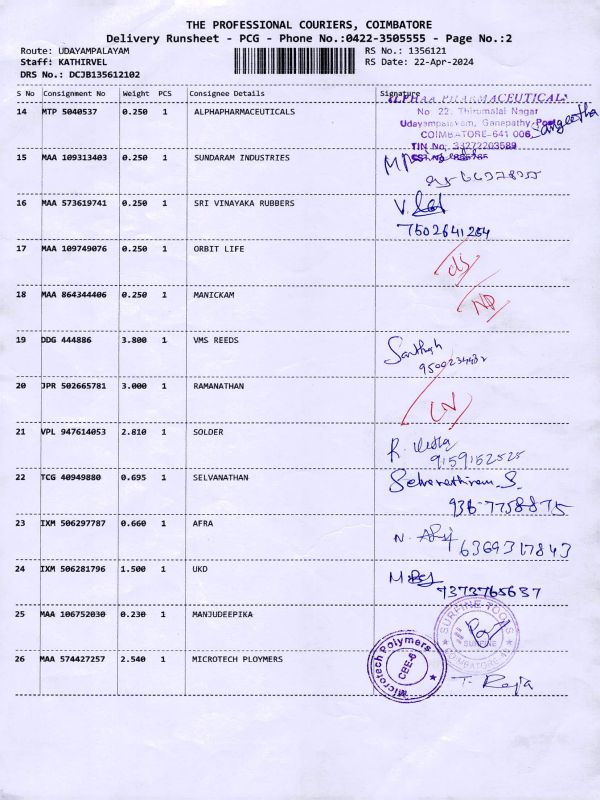 THE PROFESSIONAL COURIERS, COIMBATORE
Delivery Runsheet - PCG - Phone No.:0422-3505555 - Page No.:2
Route: UDAYAMPALAYAM RS No.: 1356121
Staff: KATHIRVEL RS Date: 22-Apr-2024
DRS No.: DCJB135612102
S No Consignment No Weight PCS Consignee Details Signature
ALPHAA PHARMACEUTICALS
14 MTP 5040537 0.250 1 ALPHAPHARMACEUTICALS No 22, Thirumalai Nagar
Udayampalayam, Ganapathy Post
COIMBATORE-641 006 Sangeetha
TIN No: 33272203589
15 MAA 109313403 0.250 1 SUNDARAM INDUSTRIES
16 MAA 573619741 0.250 1 SRI VINAYAKA RUBBERS V.
7502641254
17 MAA 109749076 0.250 1 ORBIT LIFE
18 MAA 864344406 0.250 1 MANICKAM NP
19 DDG 444886 3.800 1 VMS REEDS Santhosh
9500234432
20 JPR 502665781 3.000 1 RAMANATHAN
21 VPL 947614053 2.810 1 SOLDER R.
9159152525
22 TCG 40949880 0.695 1 SELVANATHAN
23 IXM 506297787 0.660 1 AFRA N.
6369317843
24 IXM 506281796 1.500 1 UKD
9373765637
25 MAA 106752030 0.230 1 MANJUDEEPIKA SURFINE TOOLS
SURFINE
COIMBATORE
26 MAA 574427257 2.540 1 MICROTECH PLOYMERS Microtech Polymers
CBE-6
T. Raja